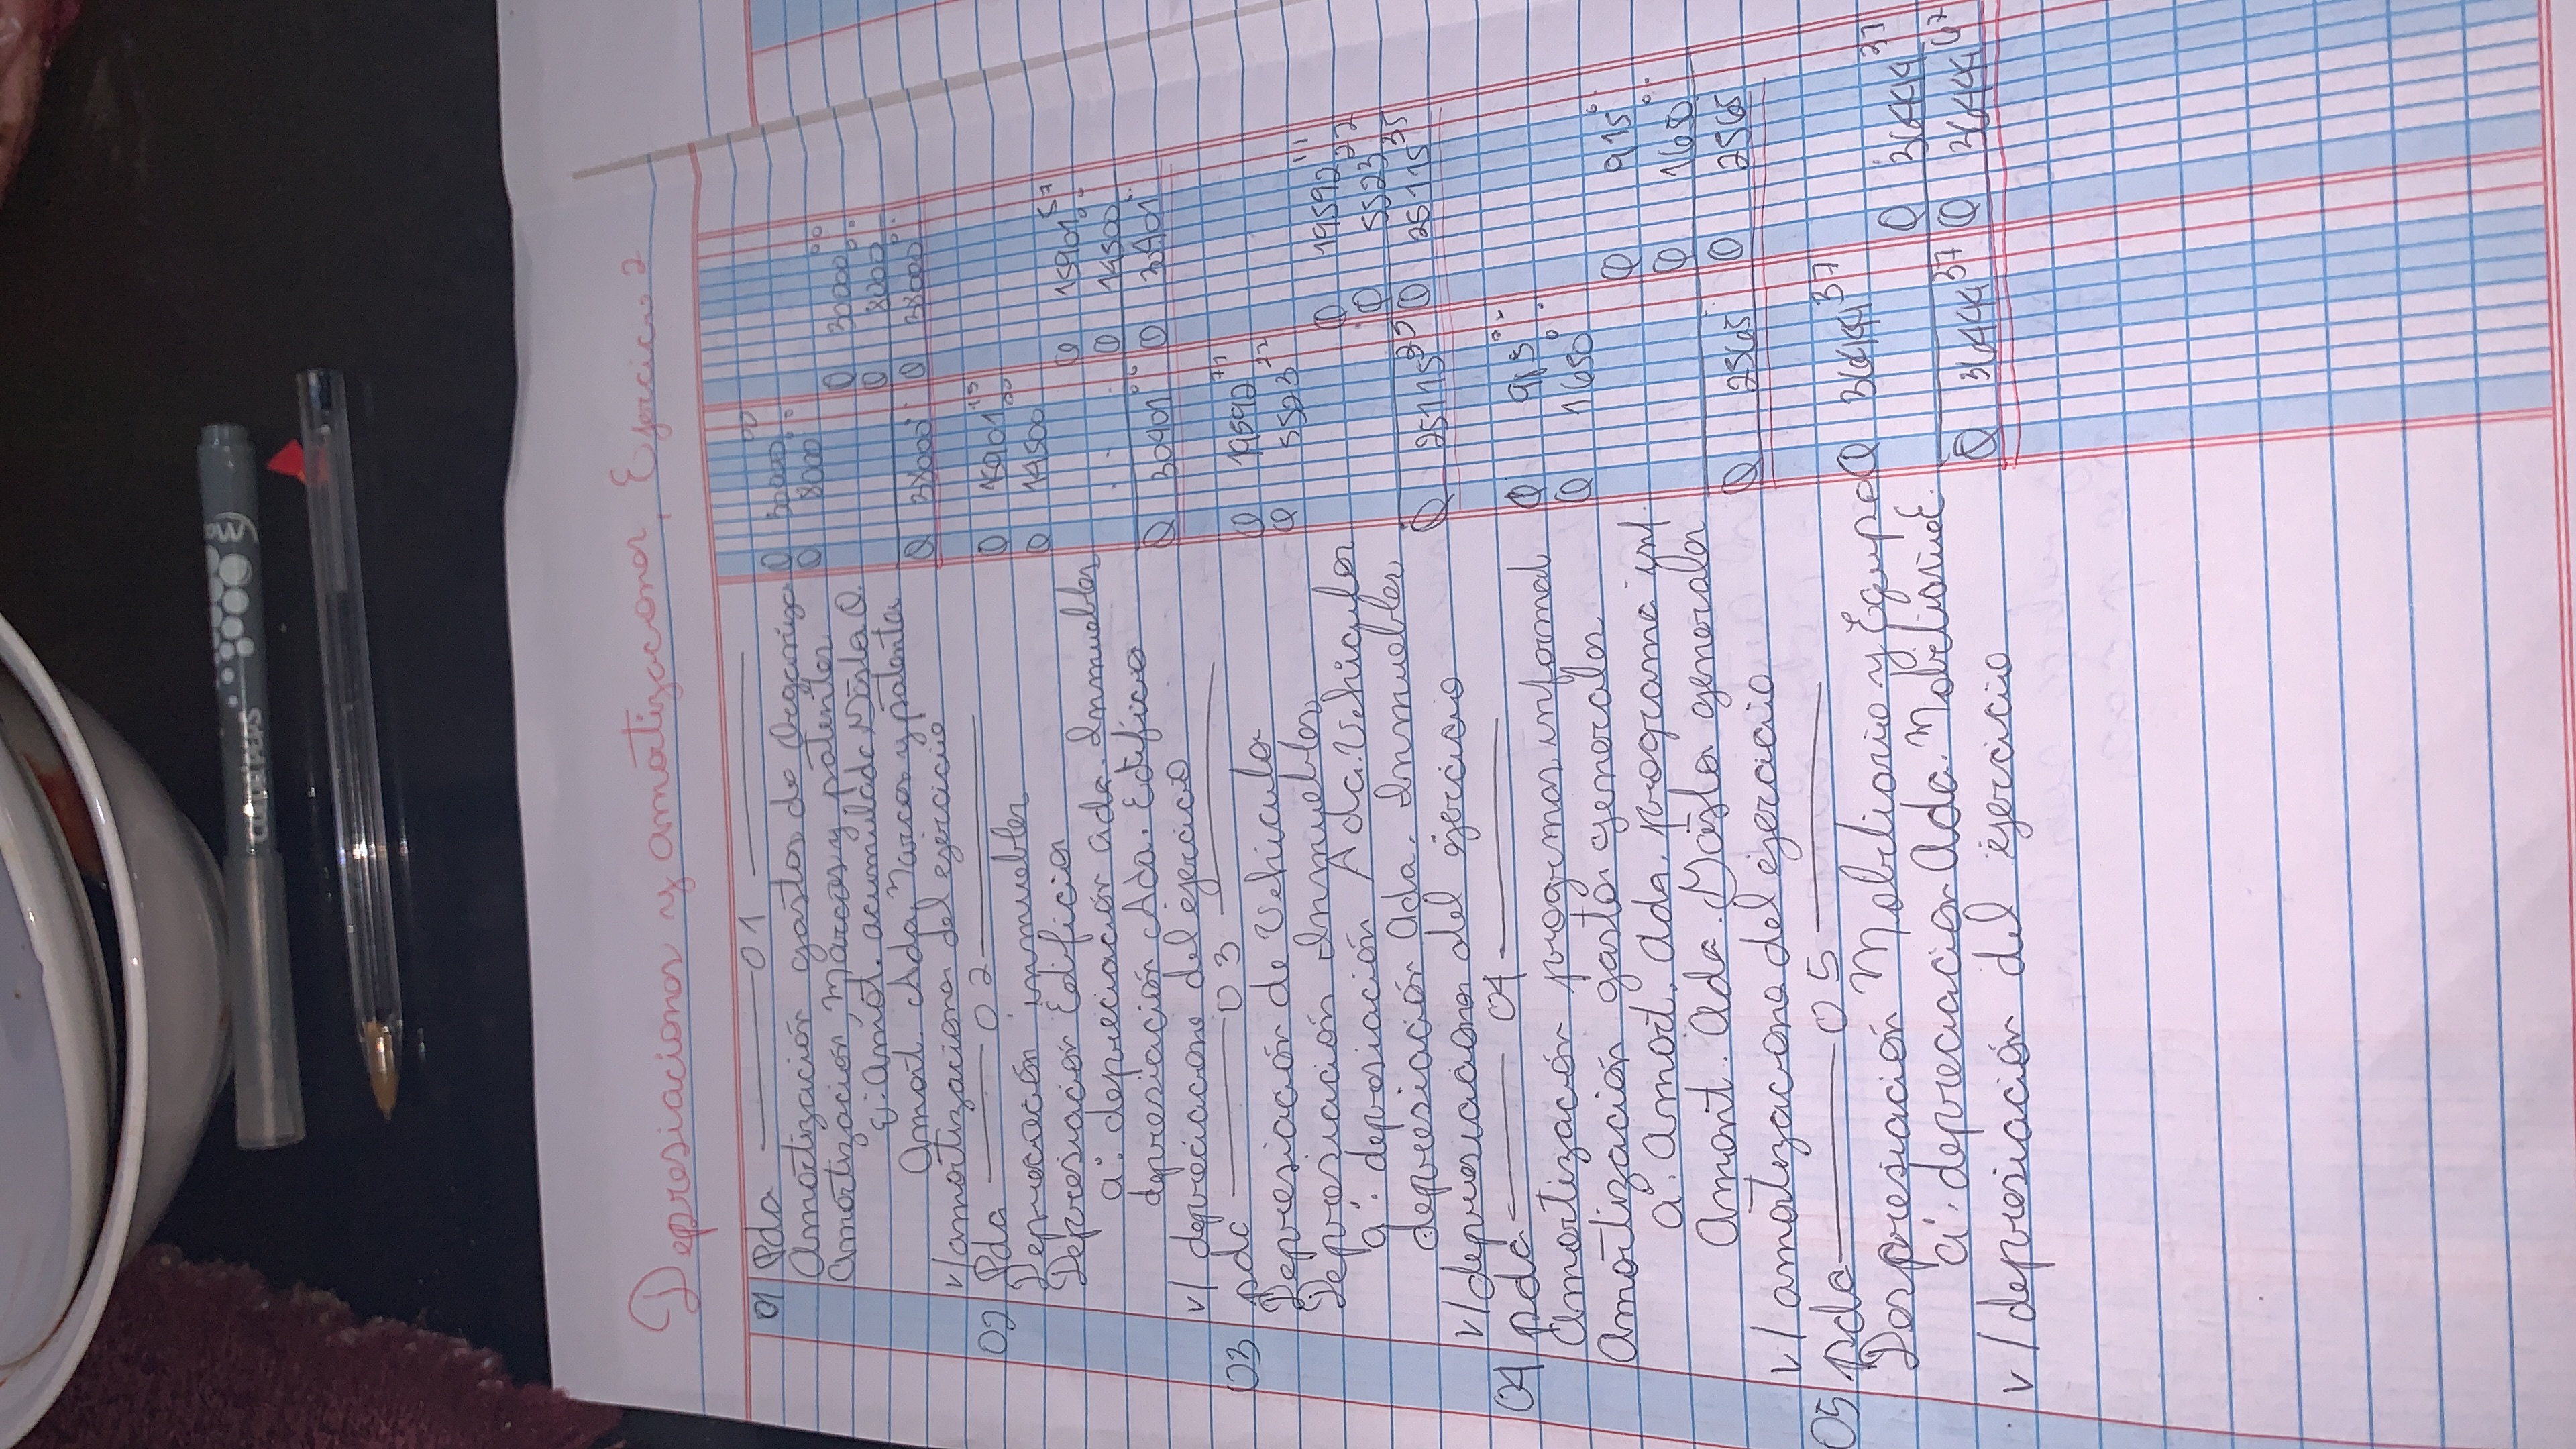 Depresiaciones y amotizaciones, Ejercicio 2
01 Pda 01
Amotización gastos de Organiza Q 30000 00
Amortización Marcas y patentes Q 8000 00
a: Amot. acumulada Q 30000 00
Amort. Ada, Marcas y patentes Q 8000
v/amortizaciones del ejercicio Q 38000 Q 38000
02 Pda 02
Depreciación inmuebles Q 15901
Depresiación Edificios Q 14500 00
a: depreciación ada. Inmuebles Q 15901 57
depresiación Ada. Edificio Q 14500
v/ depreciacione del ejercicio Q 30401 Q 3401
03 Pda 03
Depresiación de Vehiculo Q 19592
Depresiación Inmuebles Q 5523 22
a: depresiación Ada. Vehiculos Q 19592 11
depresiación ada. Inmuebles Q 5523 22
v/depresiaciones del ejercicio Q 25115 35 Q 25115 35
04 pda 04
Amortización programas informal Q 915
Amortización gastos generales Q 1650
a: Amort. Ada, programa inf. Q 915
Amort. Ada. Gasto generales Q 1650
v/ amotizacione del ejercicio Q 2565 Q 2565
05 Pda 05
Despresiación Mobiliario y Equipo Q 36441 37
a: depreciacion Ada. Mobiliario E. Q 36441 37
v/depresiación del ejercicio Q 36441 37 Q 36441 47
STABILO